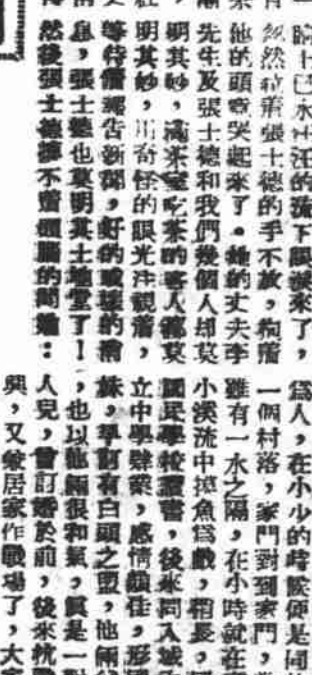 臉上已水汪汪的流下眼淚來了，
忽然拉着張士德的手不放，抱着
他的頭啼哭起來了。她的丈夫李
先生及張士德和我們幾個人却莫
明其妙，滿茶室吃茶的客人都莫
明其妙，用奇怪的眼光注視着，
等待着報告新聞，好的或壞的消
息，張士德也莫明其土地堂了！
然後張士德摸不着頭腦的問她：
爲人，在小小的時候便是同
一個村落，家門對到家門，
雖有一水之隔，在小時就在
小溪流中摸魚爲戲，稍長，
國民學校讀書，後來同入城
立中學肄業，感情頗佳，形
妹，早訂有白頭之盟，他倆
，也以他倆很和氣，眞是一對
人兒，曾訂婚於前，後來抗戰
興，又被居家作戰場了，大家